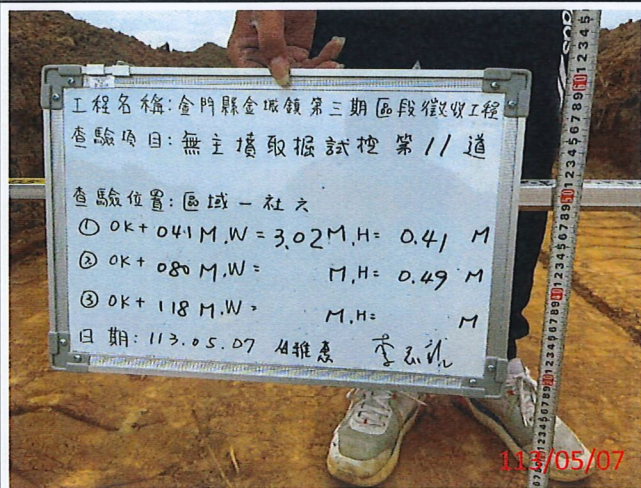 工程名稱:金門縣金城鎮第三期區段徵收工程
查驗項目:無主墳取掘試挖第11道
查驗位置:區域一社六
① 0K+041M.W=3.02M,H=0.41 M
② 0K+080M.W= M,H=0.49 M
③ 0K+118M.W= M.H= M
日期:113.05.07
113/05/07